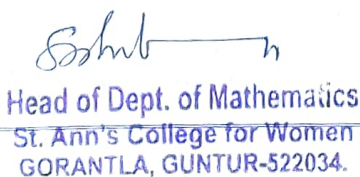 Head of Dept. of Mathematics
St. Ann's College for Women
GORANTLA, GUNTUR-522034.